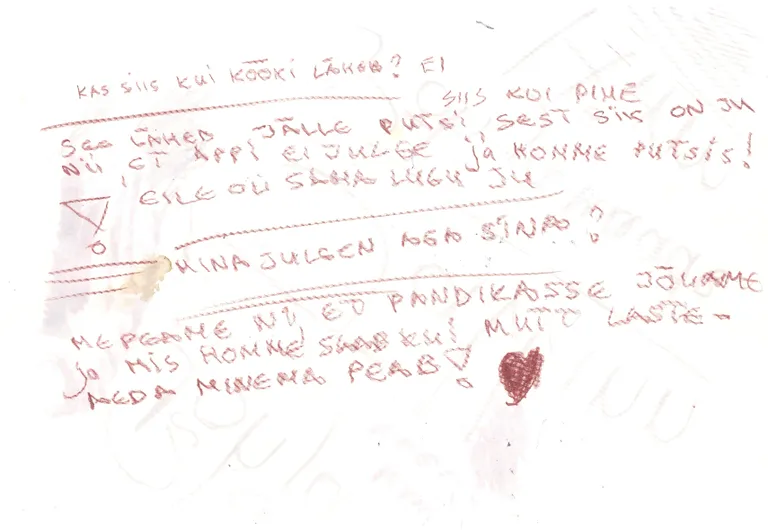 KAS SIIS KUI KÖÖKI LÄHEB? EI
SIIS KUI PIME
SEE LÄHEB JÄLLE PUTSI, SEST SIIS ON JU
NII, ET APPI EI JULGE JA HOMME PUTSIS!
EILE OLI SAMA LUGU JU
MINA JULGEN AGA SINA?
ME PEAME NII, ET PANDIKASSE JÕUAME
JA MIS HOMME SAAB KUI
MINEMA PEAB